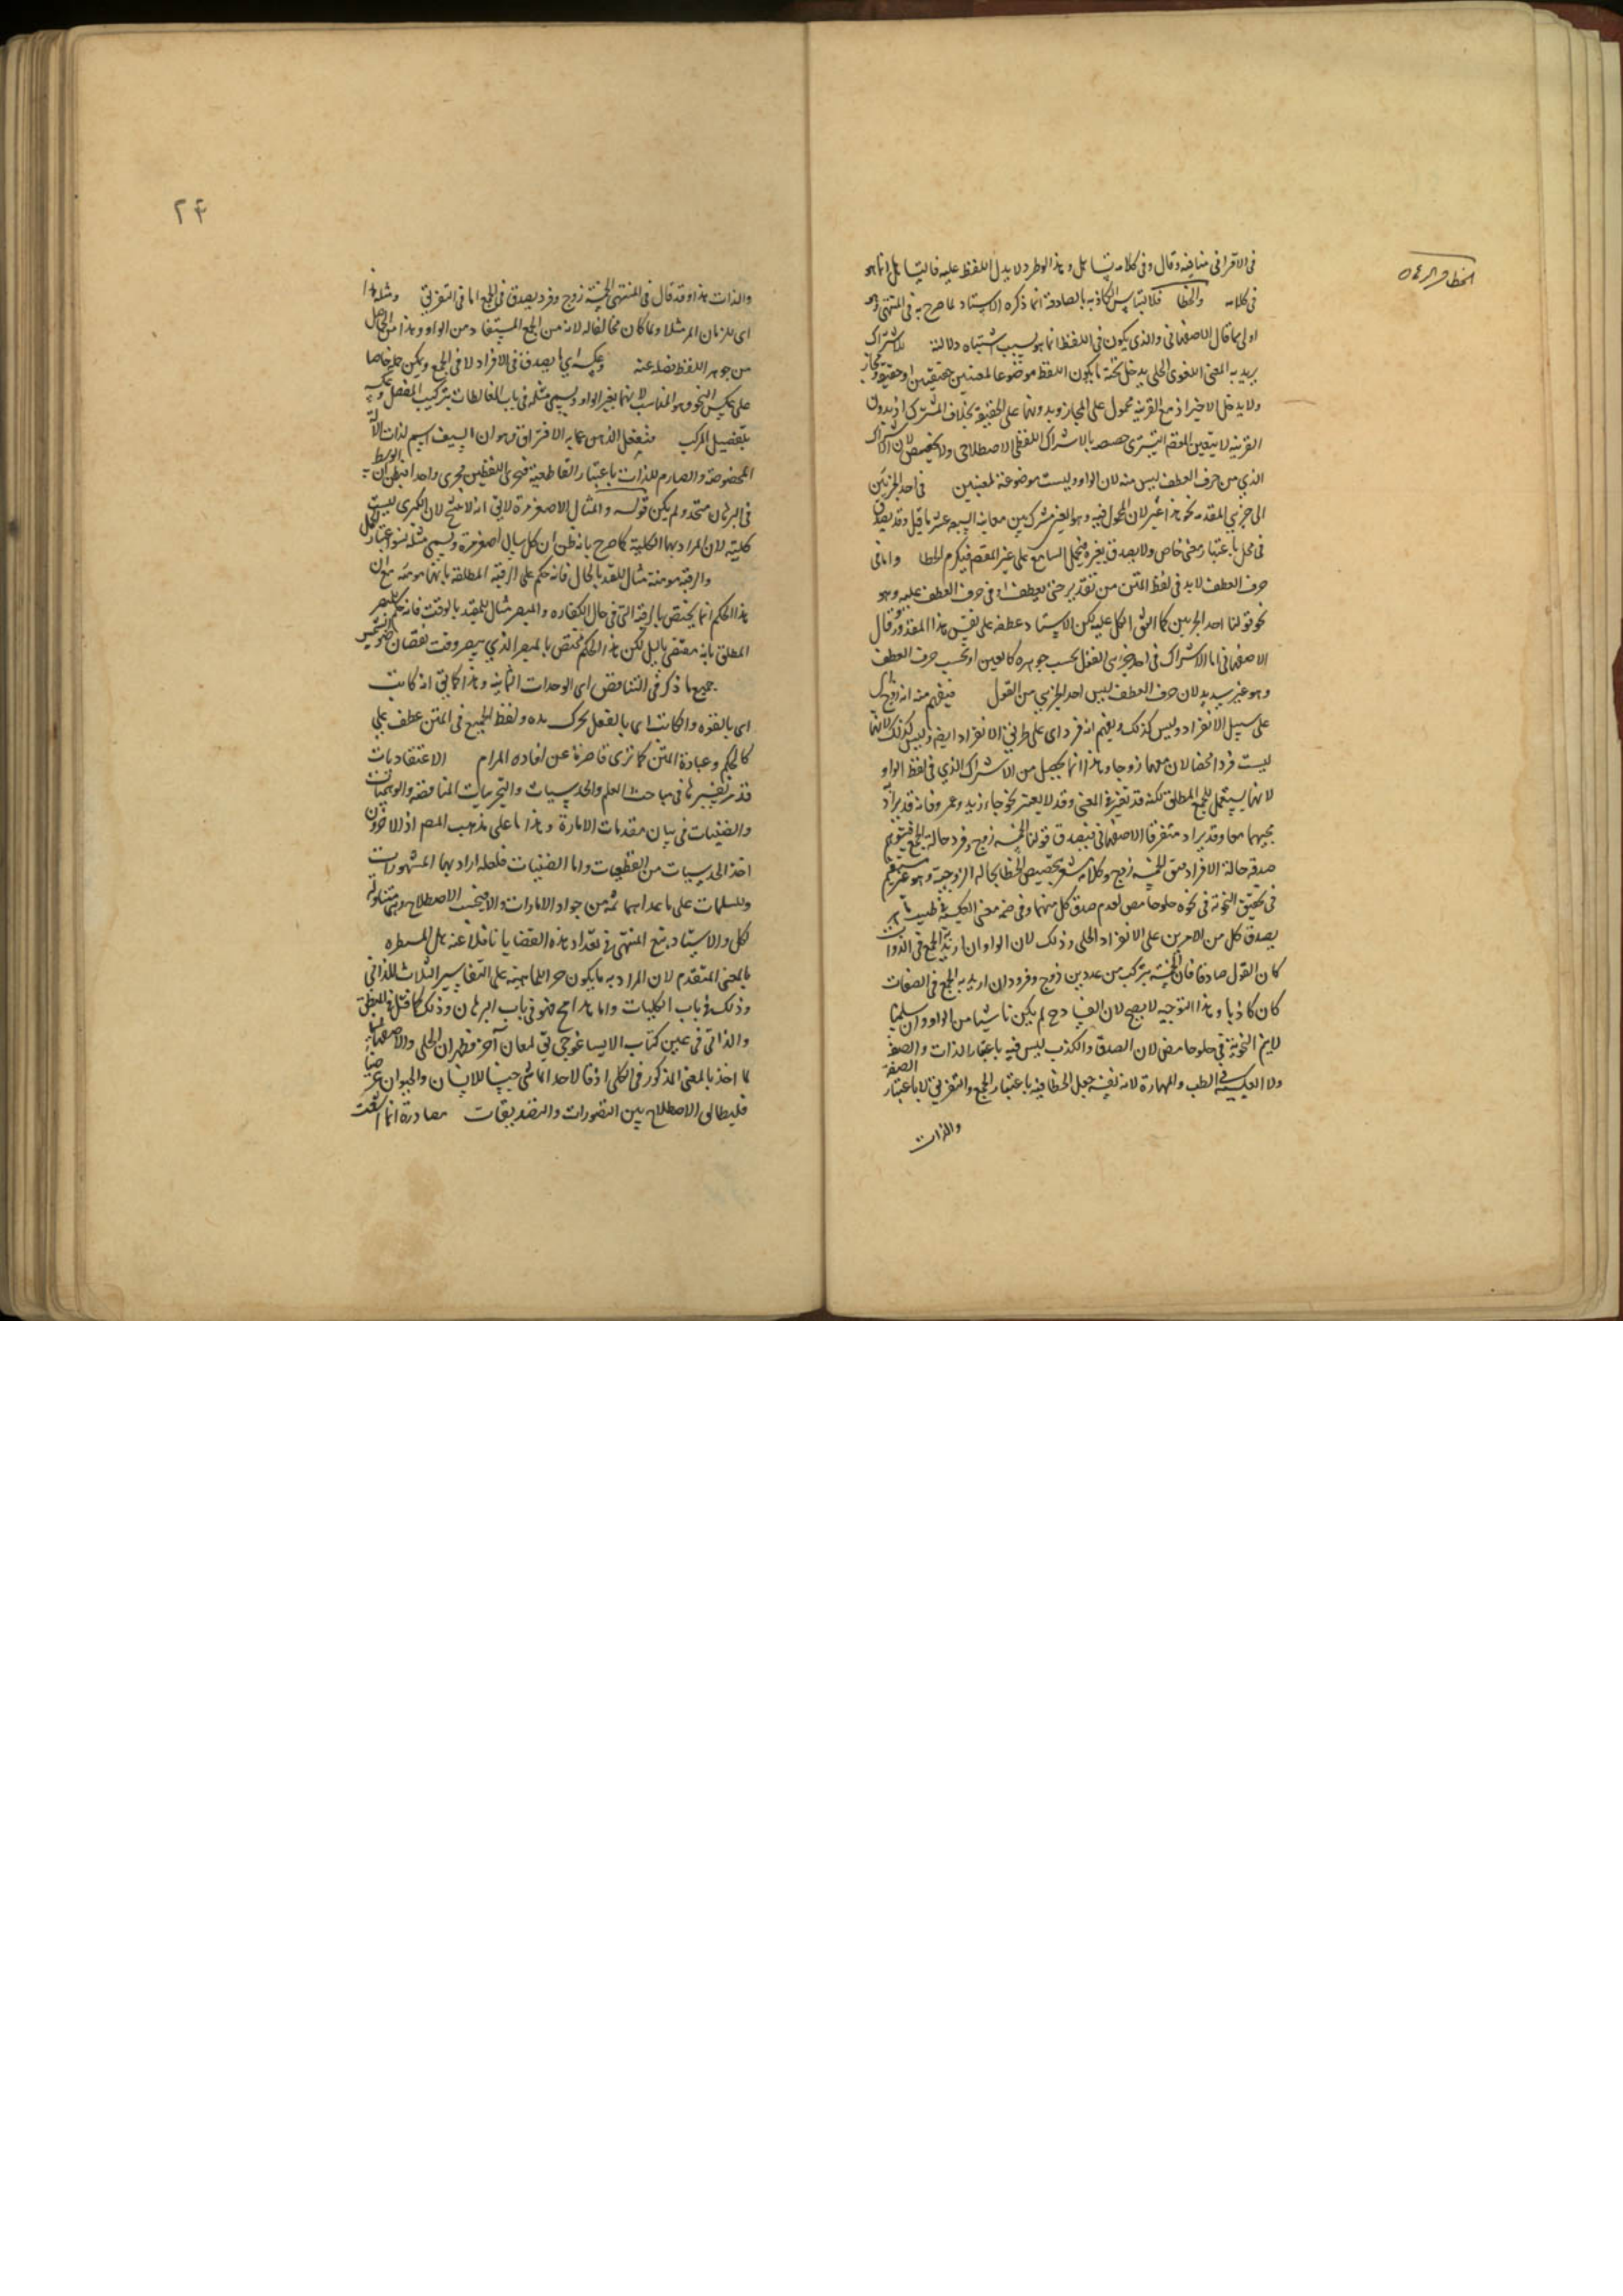 في الاقراني منافيه وقال وفي كلامه تساهل وهذا لو طرد لا يدل اللفظ عليه فالتساهل انما هو
في كلامه والخطا فلالتباس الكاذبه بالصادقة انما ذكره الاستاد لما صرح به في المنتهى وهو
اولى مما قال الاصفهاني والذي يكون في اللفظ انما هو بسبب اشتباه دلالته للاشتراك
يريد به المعنى اللغوي الجلي يدخل تحته ما يكون اللفظ موضوعا لمعنيين حقيقيين او حقيقة ومجاز
ولا يدخل الاخير اذ مع القرينة محمول على المجاز وبدونها على الحقيقة بخلاف المشترك اذ بدون
القرينة لا يتعين المقصود التستري خصصه بالاشتراك اللفظي الاصطلاحي ولا تخصيص لان الاشتراك
الذي من حرف العطف ليس منه لان الواو وليست موضوعة لمعنيين في احد الجزئين
الى جزئي المقدمة نحو هذا عين لان المحمول فيه وهو العين مشترك بين معانيه السبعة عشر ما قيل وقد يصدق
في محل باعتبار معنى خاص ولا يصدق بغيره فيحمل السامع على غير المقصود فيلزم الخطا واما في
حرف العطف لابد في لفظ المتن من تقدير حتى يعطف او في حرف العطف عليه وهو
نحو قولنا احد الجزئين كما اتفق الكل عليه لكن الاستاد عطفه على نفس هذا المقدر وقال
الاصفهاني اما الاشتراك في احد جزءي القول بحسب جوهره كالعين او بحسب حرف العطف
وهو غير سديد لان حرف العطف ليس احد الجزئين من القول فيفهم منه انه زوج
على سبيل الانفراد وليس كذلك ويفهم انه فرد اي على طريق الانفراد ايضا وليس كذلك لانها
ليست فردا محضا لان معها زوجا وهذا انما يحصل من الاشتراك الذي في لفظ الواو
لانها يستعمل للجمع المطلق لكنه قد تغيره المعنى وقد لا يعتبر نحو جاء زيد وعمرو فانه قد يراد
مجيئهما معا وقد يراد متفرقا الاصفهاني فيصدق قولنا الخمسة زوج وفرد حالة الجمع فيتوهم
صدقه حالة الافراد فيق الخمسة زوج وكلامه مشعر بتخصيص الخطا بحالة الزوجية وهو غير مستقيم
في تحقيق النحوية في نحوه حلو حامض لعدم صدق كل منهما وفي ضمه معنى العكسية في طبيب ماهر
يصدق كل من الامرين على الانفراد الجلي وذلك لان الواو ان اريد به الجمع في الذوات
كان القول صادقا فان الخمسة يتركب من عددين زوج وفرد وان اريد به الجمع في الصفات
كان كاذبا وهذا التوجيه لا يصح لان الفساد ح لم يكن ناشيا من الواو وان سلمنا
لا يتم النحوية في حلو حامض لان الصدق والكذب ليس فيه باعتبار الذات والصفة
ولا العكسية في الطب والمهارة لانه نفسه جعل الخطا فيه باعتبار الجمع والتفريق لا باعتبار الصفة
والذات
٢٤
والذات هذا وقد قال في المنتهى الخمسة زوج وفرد يصدق في الجمع اما في التفريق ومثله هذا
اي للزمان المر مثلا ولما كان مخالفا له لانه من الجمع المستفاد من الواو وهذا من الحاصل
من جوهر اللفظ فصله عنه وعكسه اي ما يصدق في الافراد لا في الجمع ويمكن جعله خاصا
على عكس النحو وهو المناسب لانهما بغير الواو ويسمى مثله في باب المغالطات بتركيب المفصل وعكسه
بتفصيل المركب فيغفل الذهن عما به الافتراق وهو ان السيف اسم لذات الالة
المخصوصة والصارم للذات باعتبار القاطعية فيجري اللفظين مجرى واحدا فيظن ان الوسط
في البرهان متحد ولم يكن قوله والمثال الاصغر مرة لا يق انه لا ينتج لان الكبرى ليست
كلية لان المراد بها الكلية كما صرح بانه ظن ان كل سيال اصفر مرة ويسمى مثله سوء اعتبار الحمل
والرقبة مومنة مثال للمقيد بالحال فانه حكم على الرقبة المطلقة بانها مومنة مع ان
هذا الحكم انما يختص بالرقبة التي في حال الكفاره والمبصر مثال للمقيد بالوقت فانه حكم للمبصر
المطلق بانه مقتفى بالليل لكن هذا الحكم مختص بالمبصر الذي يبصر وقت نقصان ضوء الشمس
جميع ما ذكر في التناقض اي الوحدات الثمانية وهذا كما يق انه كاتب
اي بالقوه والكاتب اي بالفعل يحرك يده ولفظ الجميع في المتن عطف على
كالحكم وعبارة المتن كما ترى قاصرة عن افاده المرام الاعتقاديات
قد مر تفسيرها في مباحث العلم والحدسيات والتجربيات الناقصه والوهميات
والظنيات في بيان مقدمات الامارة وهذا ما على مذهب المصر اذ الاخرون
اخذ الحدسيات من القطعيات واما الظنيات فلعله اراد بها المشهورات
والمسلمات على ما عداهما ثمه من جواد الامارات والا فبحسب الاصطلاح هي متناولة
لكل والاستاد تبع المنتهى في تعداد هذه القضايا ناقلا عنه بل المسطره
بالمعنى المتقدم لان المراد به ما يكون جزءا للماهية على التفاسير الثلاث للذاتي
وذلك في باب الكليات واما هذا ح فهو في باب البرهان وذلك كما قيل في المنطق
والذاتي في غير كتاب الايساغوجي يق لمعان اخر فظهر ان الجلي والاصفهاني
لما اخذ بالمعنى المذكور في الكلي اذ قالا حد الماشي جنسا للانسان والحيوان عرضيا
فليطالع الاصطلاح بين التصورات والتصديقات مصادرة انما